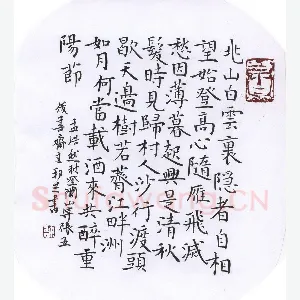 北山白雲裏隱者自相
望始登高心隨雁飛滅
愁因薄暮起興是清秋
髮時見歸村人沙行渡頭
歇天邊樹若薺江畔洲
如月何當載酒來共醉重
陽節
孟浩然秋登寄張五
齋主書